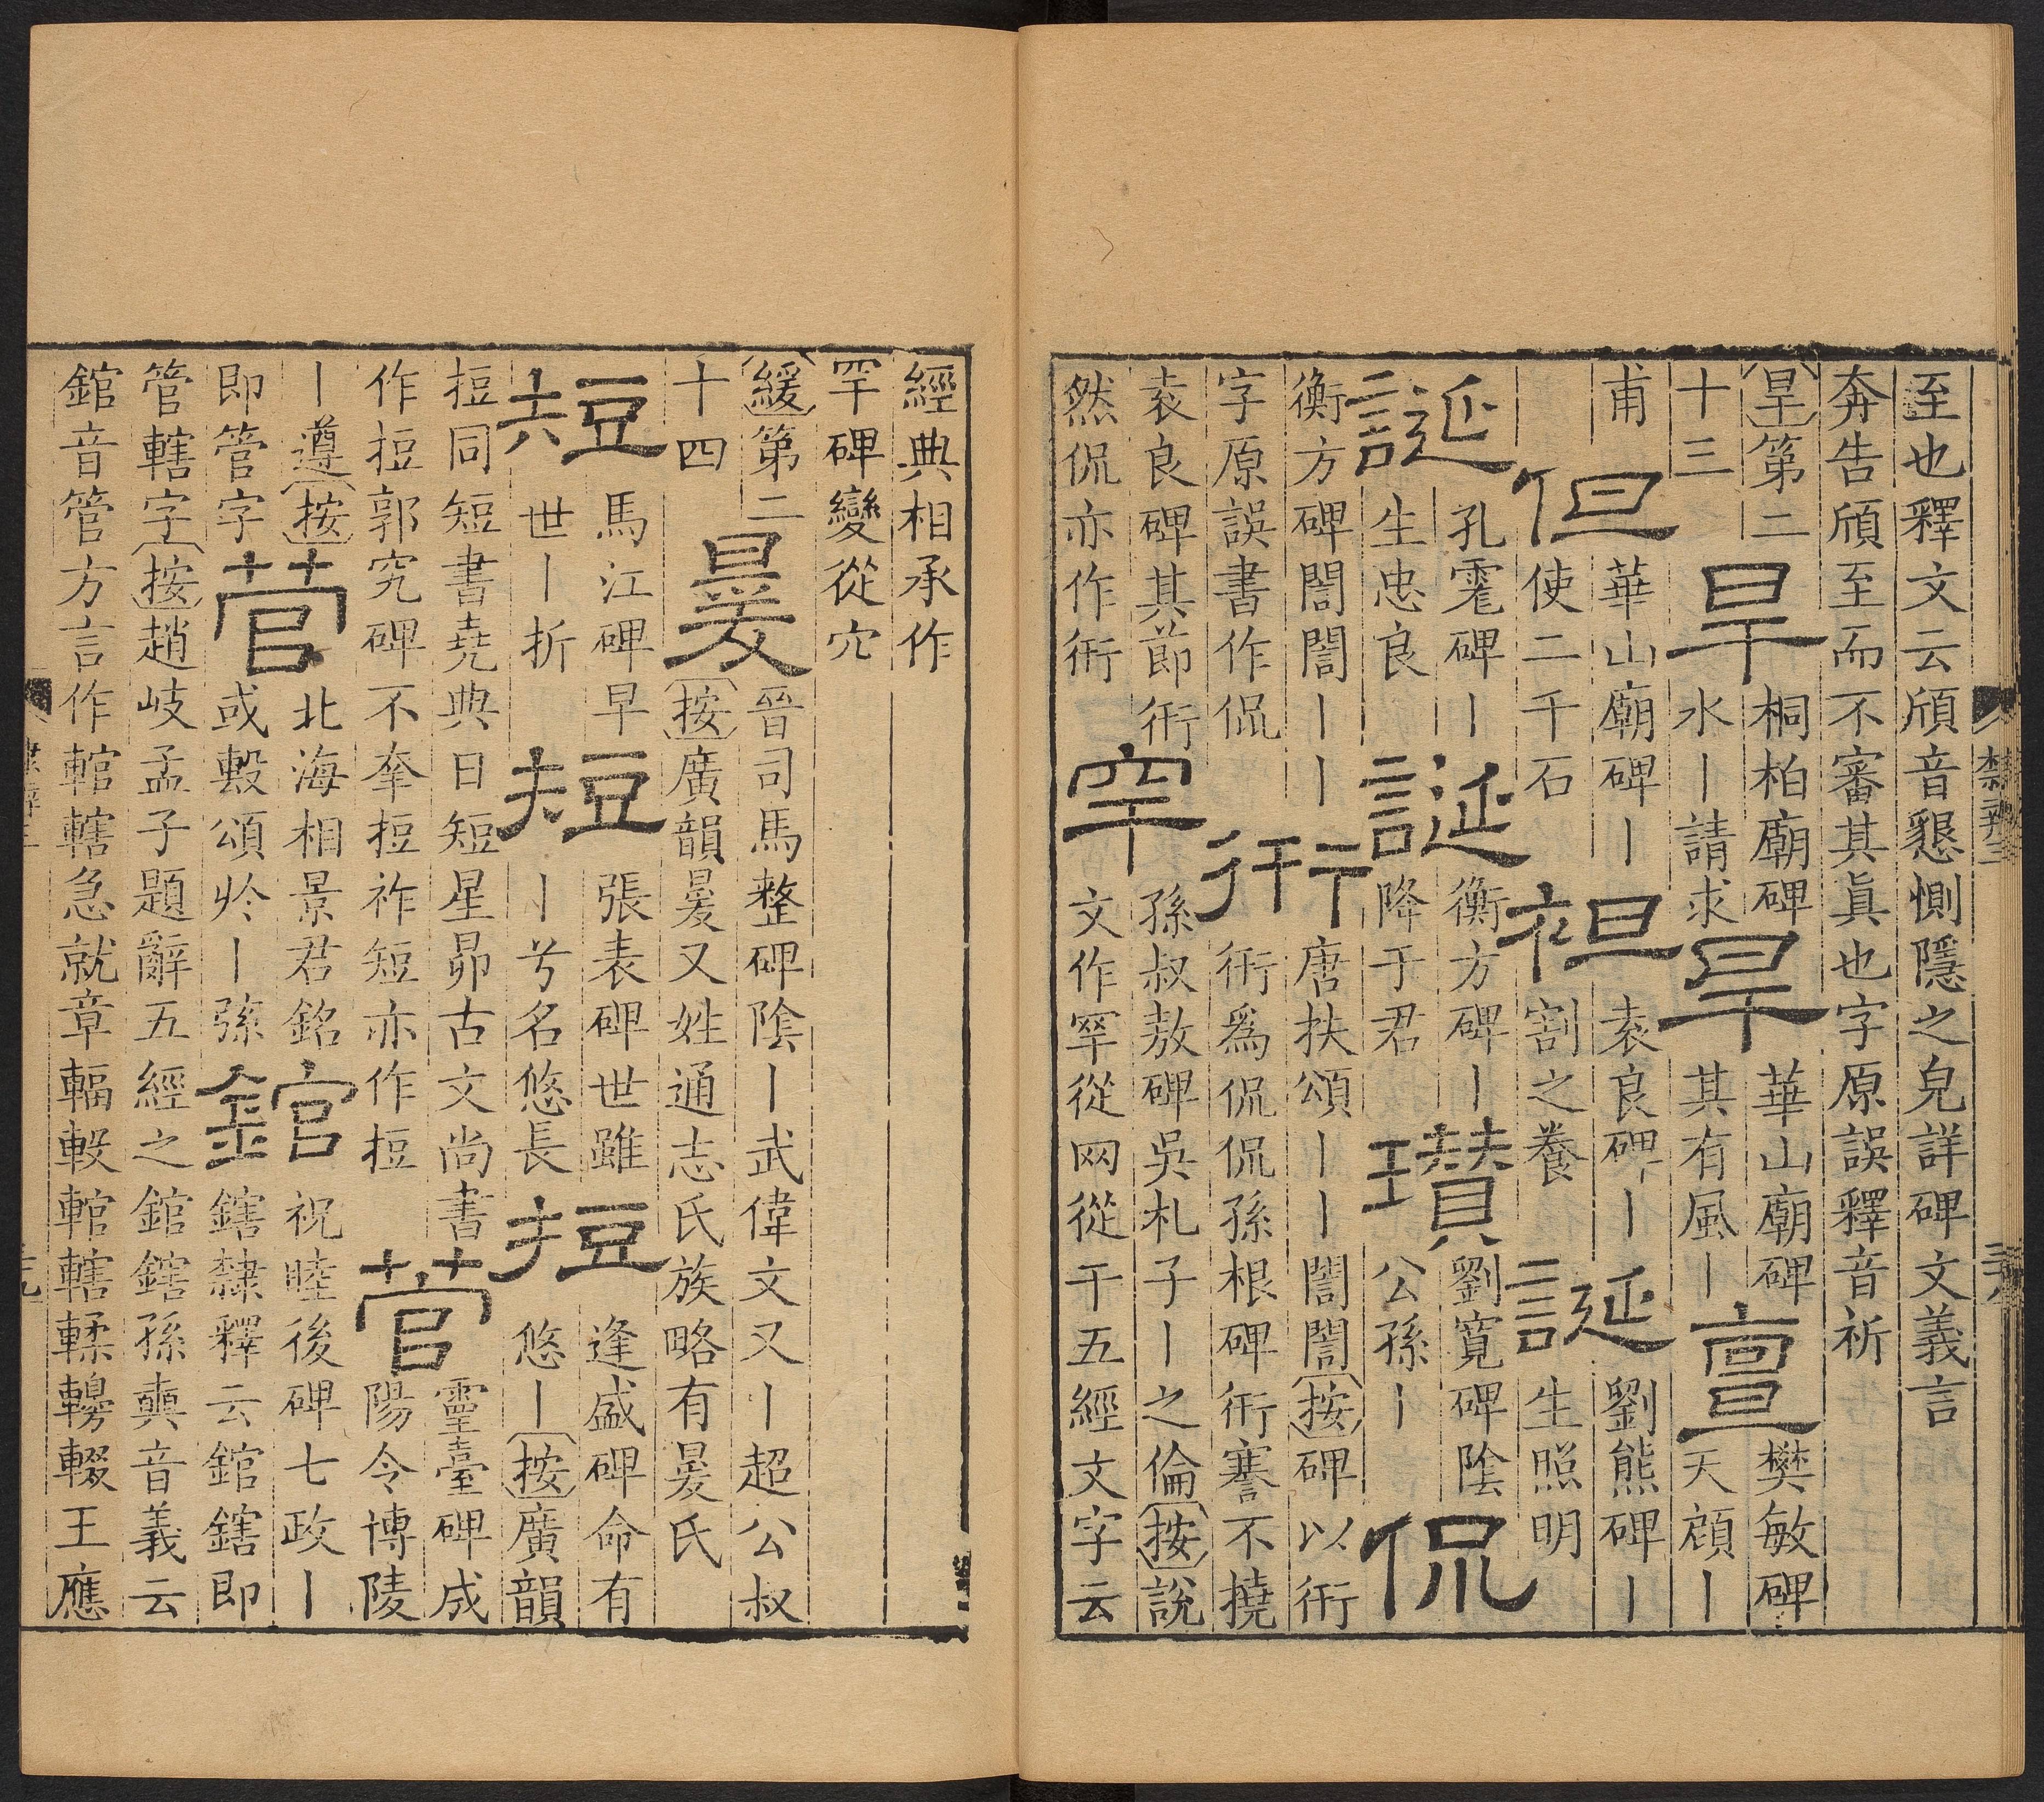 至也釋文云頎音懇惻隱之皃詳碑文義言
奔告頎至而不審其眞也字原誤釋音祈
旱第二
十三
旱
桐柏廟碑
水丨請求
旱
華山廟碑
其有風丨
亶
樊敏碑
天顔丨
甫
但
華山廟碑丨
使二千石
袒
袁良碑丨
割之養
誕
劉熊碑丨
生照明
誕
孔宙碑丨
生忠良
誕
衡方碑丨
降于君
瓚
劉寬碑陰
公孫丨
侃
衡方碑誾誾丨丨
字原誤書作侃
衎
唐扶頌丨丨誾誾按碑以衎
衎爲侃侃孫根碑衎謇不撓
袁良碑其節衎
然侃亦作衎
罕
孫叔敖碑吳札子丨之倫按說
文作罕從网從干五經文字云
隸辨三
三八
經典相承作
罕碑變從穴
緩第二
十四
㬊
晉司馬整碑陰丨武偉文又丨超公叔
按廣韻㬊又姓通志氏族略有㬊氏
短
馬江碑早
世丨折
短
張表碑世雖
丨兮名悠長
短
逢盛碑命有
悠丨按廣韻
挋同短書堯典日短星昴古文尚書
作挋郭究碑不奉挋祚短亦作挋
菅
靈臺碑成
陽令博陵
丨遵按
即管字
菅
北海相景君銘
或㲄頌於丨弦
錧
祝睦後碑七政丨
鎋隸釋云錧鎋即
管轄字按趙岐孟子題辭五經之錧鎋孫奭音義云
錧音管方言作輨轄急就章輻轂輨轄輮轑輟王應